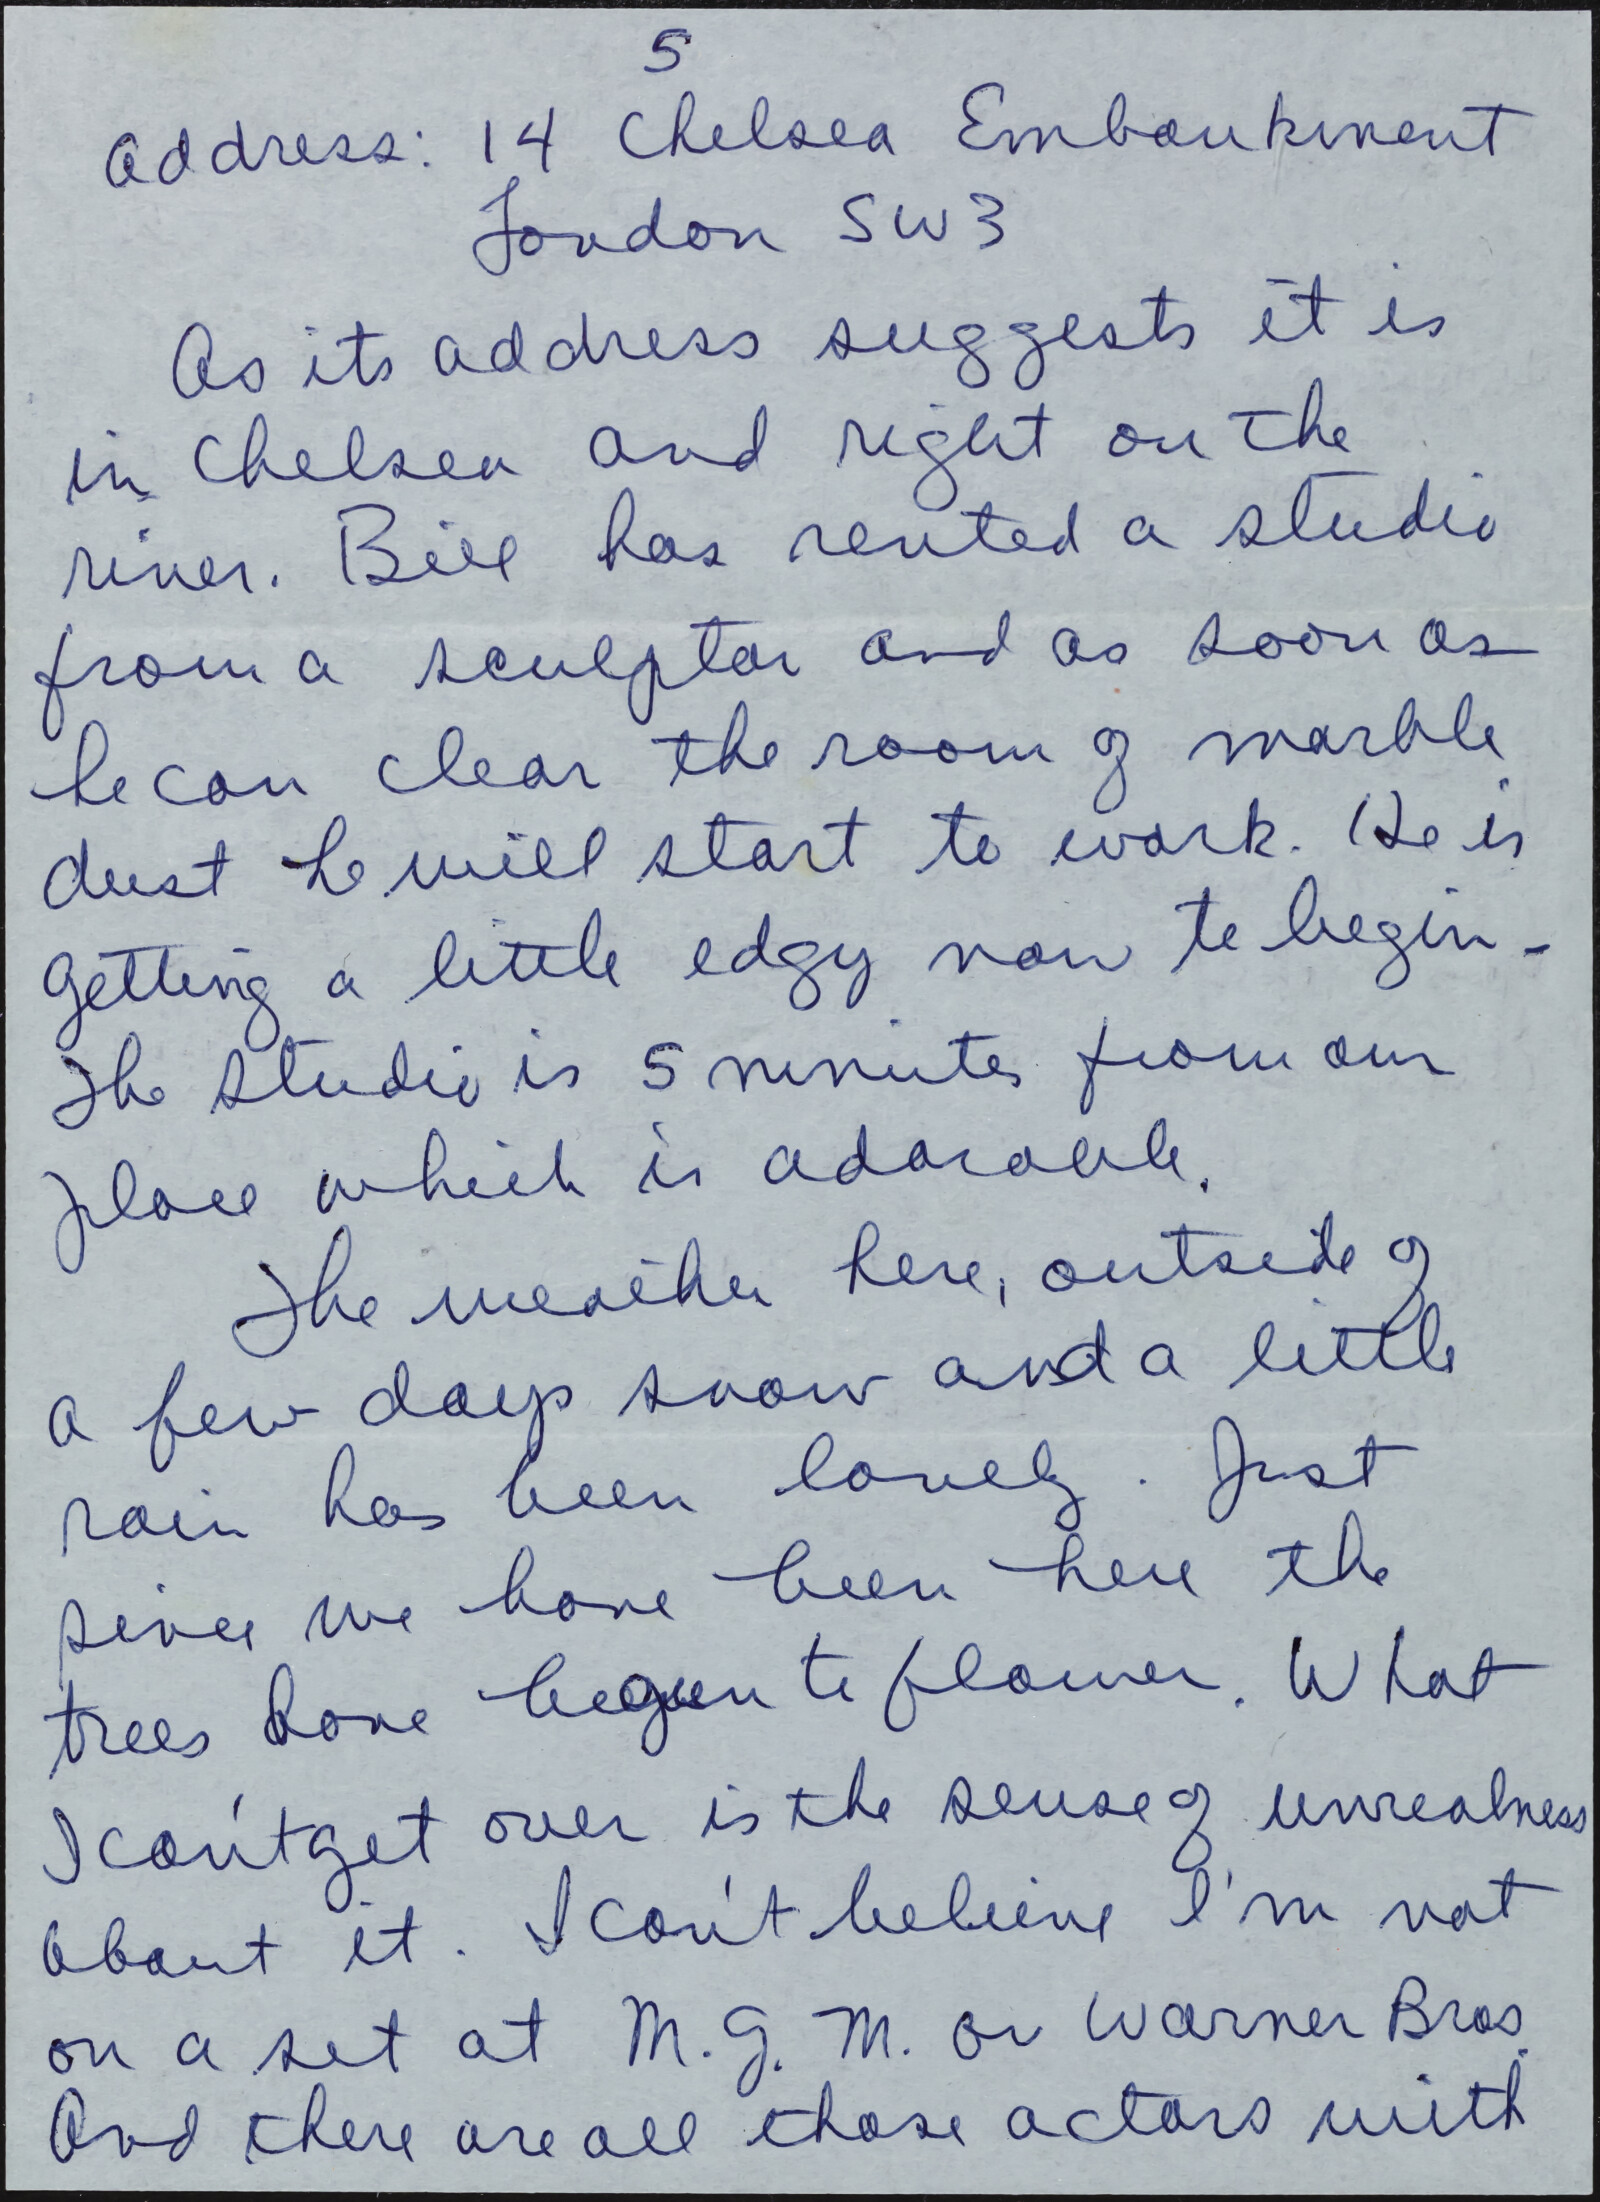 5
Address: 14 Chelsea Embankment
London SW3
As its address suggests it is
in Chelsea and right on the
river. Bill has rented a studio
from a sculptor and as soon as
he can clear the room of marble
dust he will start to work. He is
getting a little edgy now to begin -
The studio is 5 minutes from our
place which is adorable.
The weather here, outside of
a few days snow and a little
rain has been lovely. Just
since we have been here the
trees have begun to flower. What
I can't get over is the sense of unrealness
about it. I can't believe I'm not
on a set at M.G.M. or Warner Bros.
And there are all those actors with